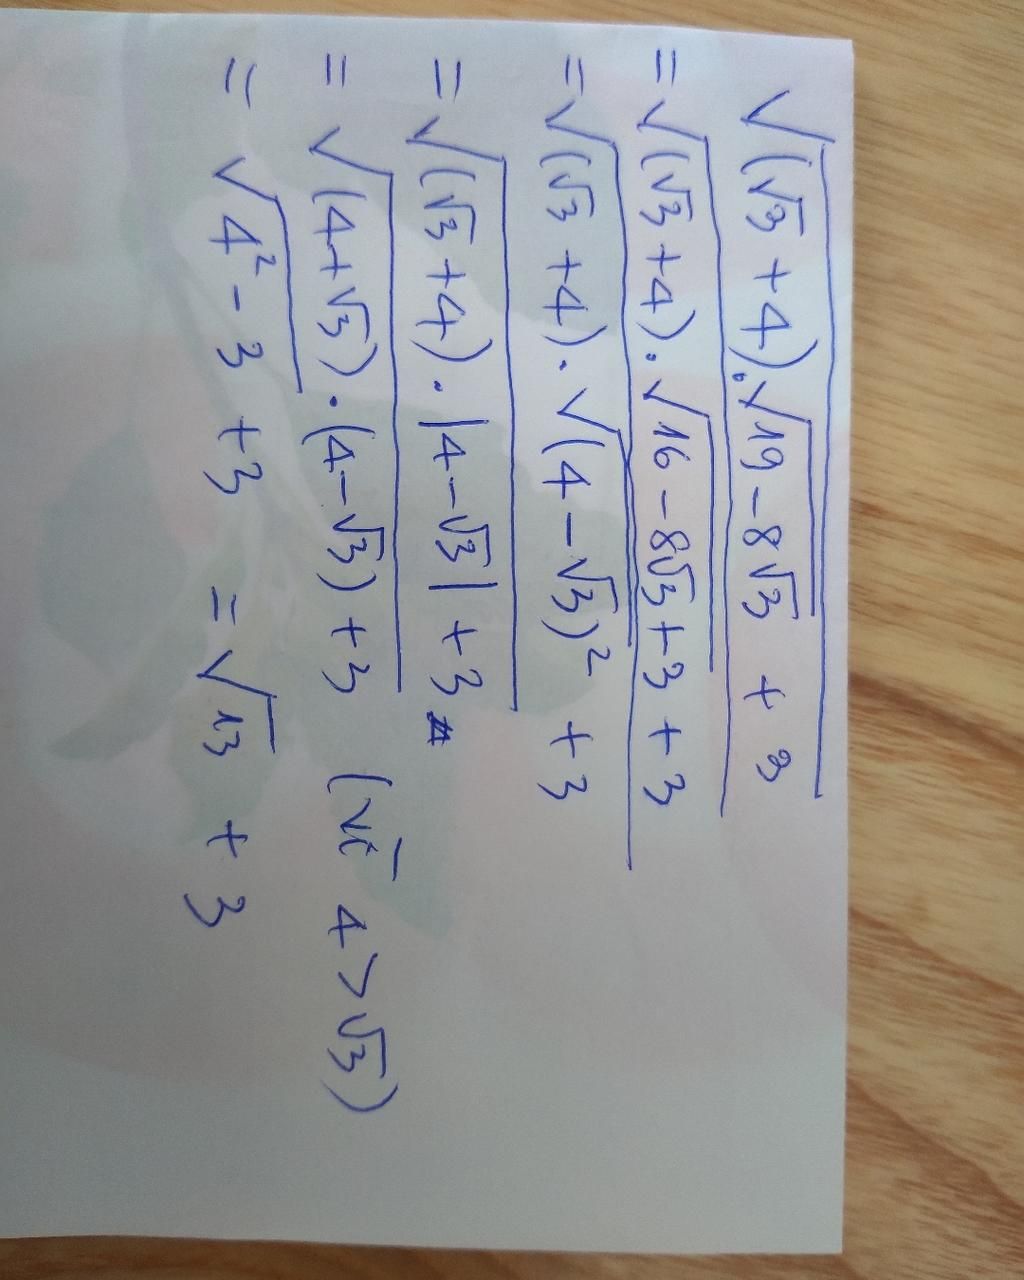 √((√3 + 4).√(19 - 8√3) + 3)
= √((√3 + 4).√(16 - 8√3 + 3) + 3)
= √((√3 + 4).√((4 - √3)²) + 3)
= √((√3 + 4).|4 - √3| + 3)
= √((4 + √3).(4 - √3) + 3) (vì 4 > √3)
= √(4² - 3) + 3 = √13 + 3